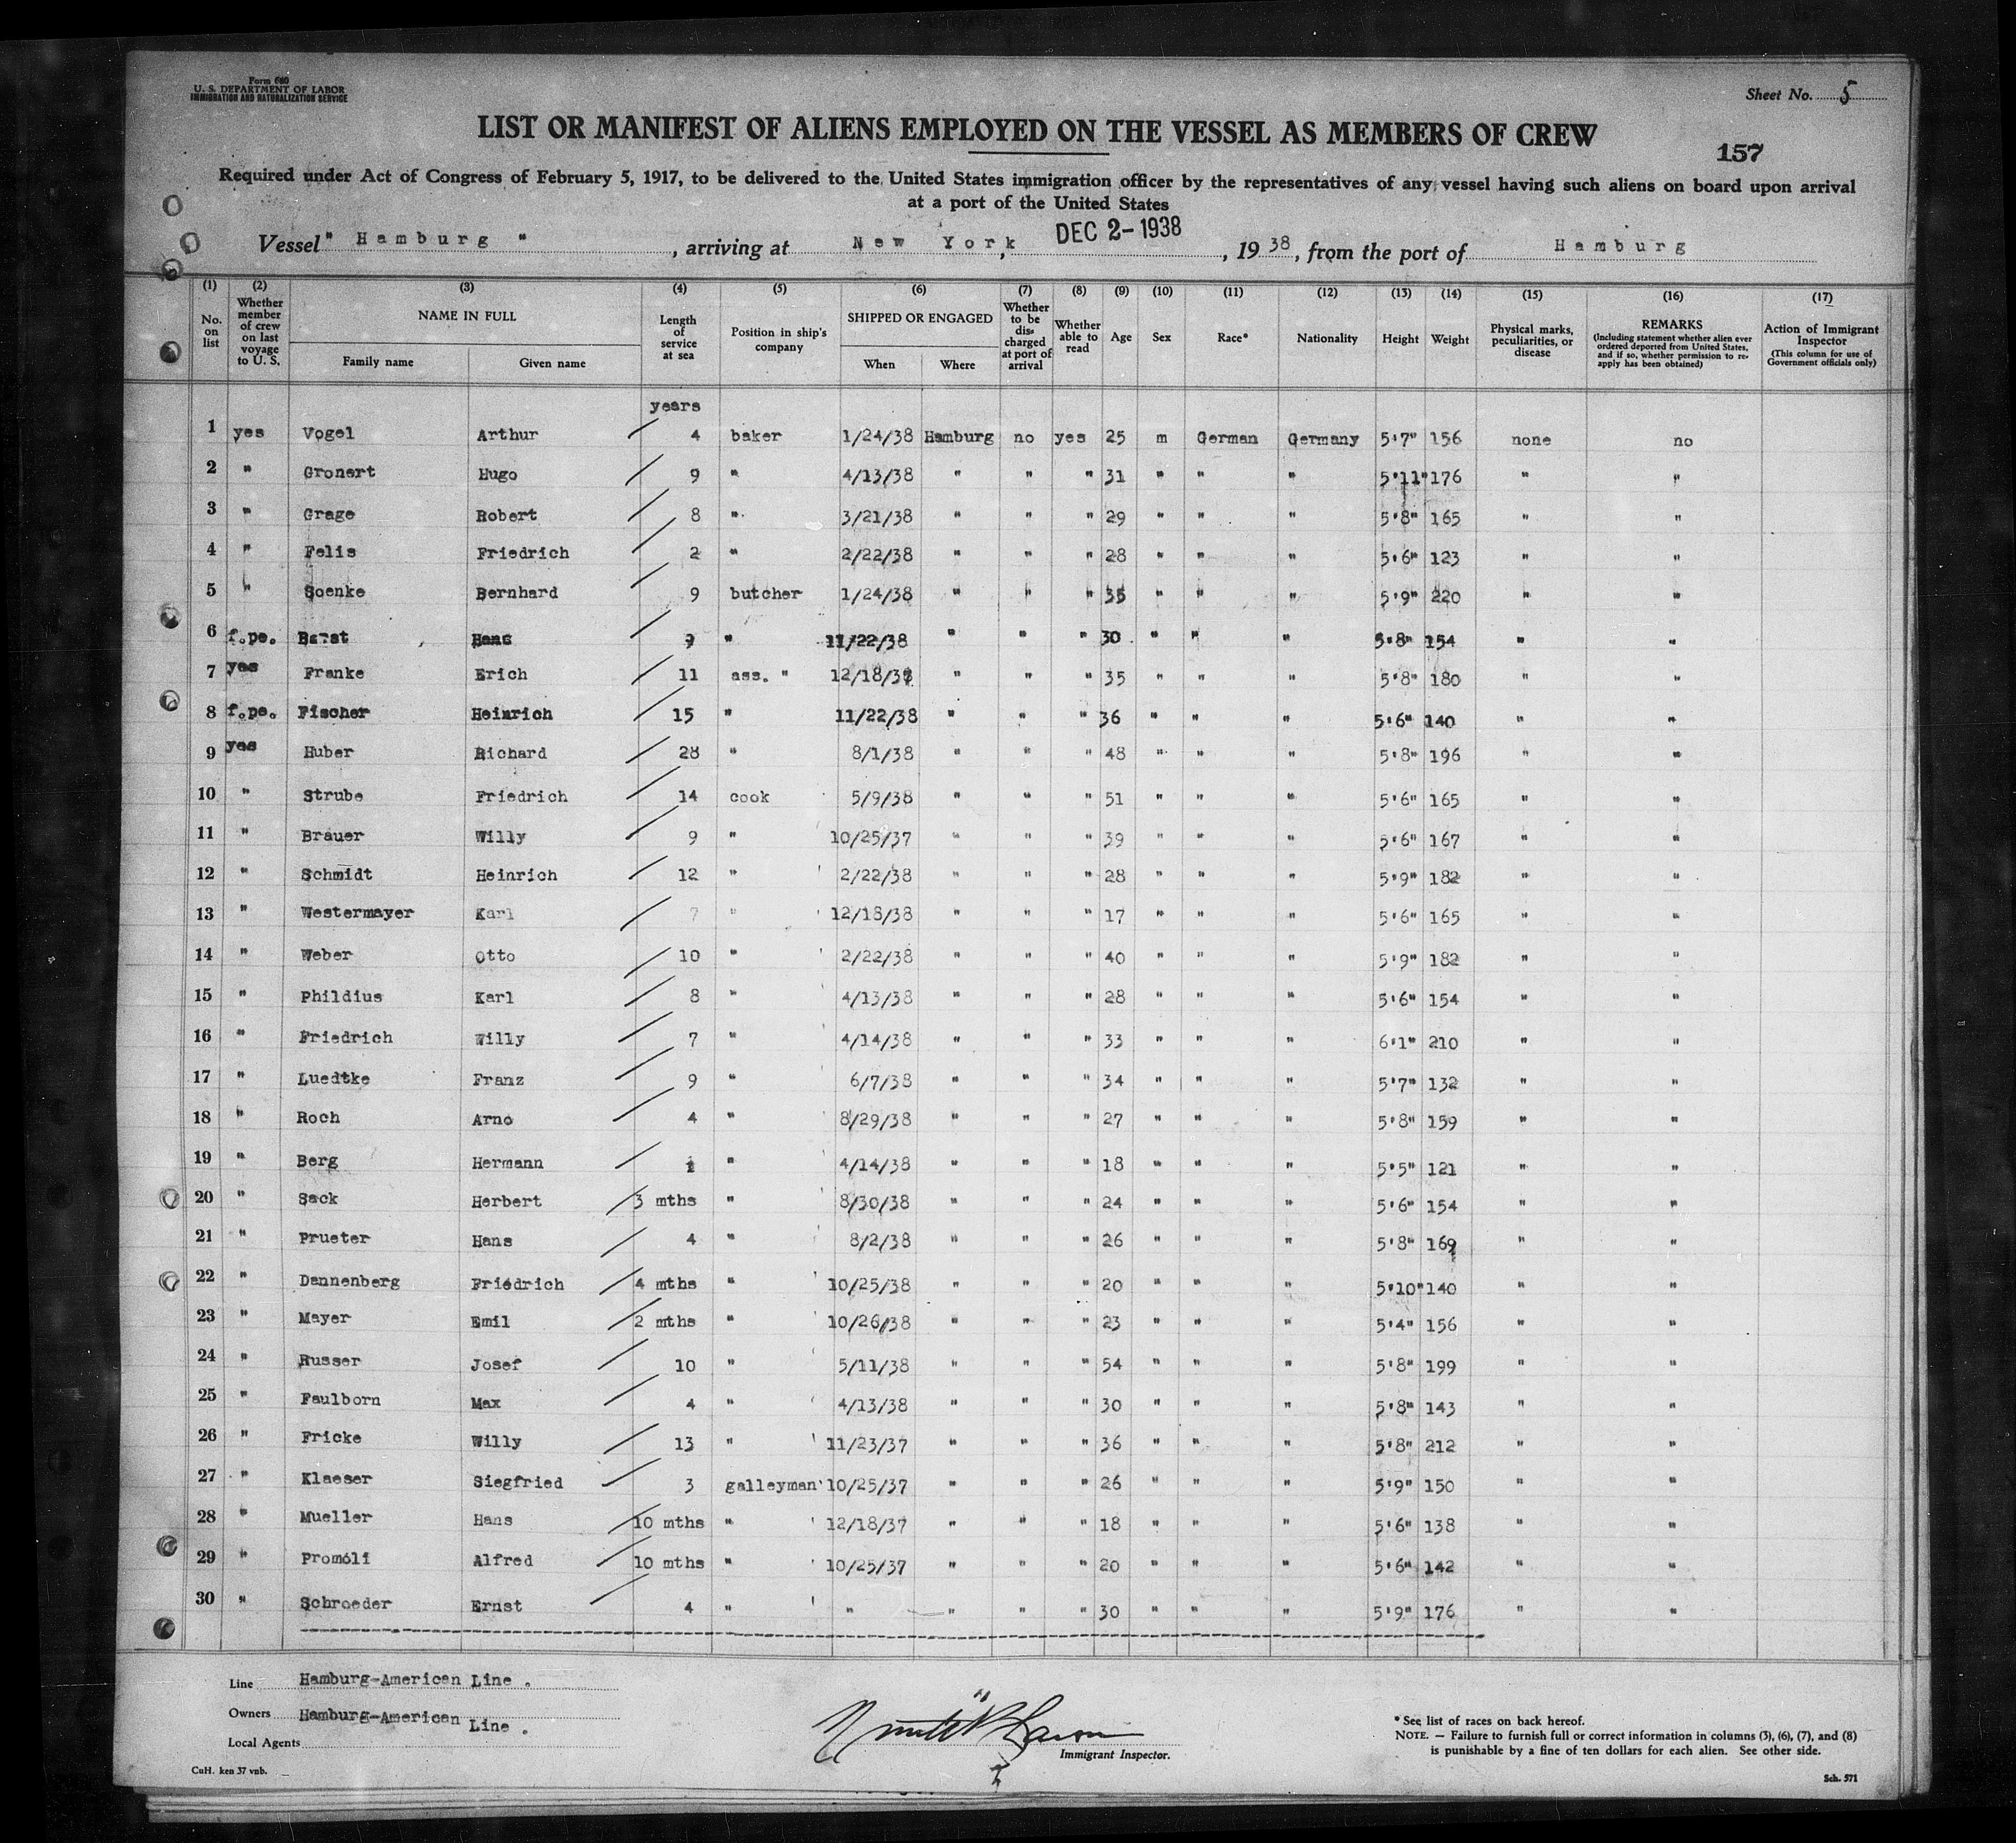 Form 680
U. S. DEPARTMENT OF LABOR
IMMIGRATION AND NATURALIZATION SERVICE
Sheet No. 5
LIST OR MANIFEST OF ALIENS EMPLOYED ON THE VESSEL AS MEMBERS OF CREW
157
Required under Act of Congress of February 5, 1917, to be delivered to the United States immigration officer by the representatives of any vessel having such aliens on board upon arrival
at a port of the United States
Vessel " Hamburg " , arriving at New York, DEC 2-1938 , 19 38, from the port of Hamburg
(1) (2) (3) (4) (5) (6) (7) (8) (9) (10) (11) (12) (13) (14) (15) (16) (17)
No. on list Whether member of crew on last voyage to U. S. NAME IN FULL Family name Given name Length of service at sea Position in ship's company SHIPPED OR ENGAGED When Where Whether to be discharged at port of arrival Whether able to read Age Sex Race* Nationality Height Weight Physical marks, peculiarities, or disease REMARKS (Including statement whether alien ever ordered deported from United States, and if so, whether permission to re-apply has been obtained) Action of Immigrant Inspector (This column for use of Government officials only)
years
1 yes Vogel Arthur 4 baker 1/24/38 Hamburg no yes 25 m German Germany 5'7" 156 none no
2 " Gronert Hugo 9 " 4/13/38 " " " 31 " " " 5'11" 176 " "
3 " Grage Robert 8 " 3/21/38 " " " 29 " " " 5'8" 165 " "
4 " Felis Friedrich 2 " 2/22/38 " " " 28 " " " 5'6" 123 " "
5 " Soenke Bernhard 9 butcher 1/24/38 " " " 35 " " " 5'9" 220 " "
6 f.pe. " 11/22/38 " " " 30 " " " 5'8" 154 " "
7 yes Franke Erich 11 ass. " " " " 35 " " " 5'8" 180 " "
8 f.pe. Fischer Heinrich 15 " 11/22/38 " " " 36 " " " 5'6" 140 " "
9 yes Huber Richard 28 " 8/1/38 " " " 48 " " " 5'8" 196 " "
10 " Strube Friedrich 14 cook 5/9/38 " " " 51 " " " 5'6" 165 " "
11 " Brauer Willy 9 " 10/25/37 " " " 39 " " " 5'6" 167 " "
12 " Schmidt Heinrich 12 " 2/22/38 " " " 28 " " " 5'9" 182 " "
13 " Westermayer Karl 7 " 12/18/38 " " " 17 " " " 5'6" 165 " "
14 " Weber Otto 10 " 2/22/38 " " " 40 " " " 5'9" 182 " "
15 " Phildius Karl 8 " 4/13/38 " " " 28 " " " 5'6" 154 " "
16 " Friedrich Willy 7 " 4/14/38 " " " 33 " " " 6'1" 210 " "
17 " Luedtke Franz 9 " 6/7/38 " " " 34 " " " 5'7" 132 " "
18 " Roch Arno 4 " 8/29/38 " " " 27 " " " 5'8" 159 " "
19 " Berg Hermann " 4/14/38 " " " 18 " " " 5'5" 121 " "
20 " Sack Herbert 3 mths " 8/30/38 " " " 24 " " " 5'6" 154 " "
21 " Prueter Hans 4 " 8/2/38 " " " 26 " " " 5'8" 169 " "
22 " Dannenberg Friedrich 4 mths " 10/25/38 " " " 20 " " " 5'10" 140 " "
23 " Mayer Emil 2 mths " 10/26/38 " " " 23 " " " 5'4" 156 " "
24 " Russer Josef 10 " 5/11/38 " " " 54 " " " 5'8" 199 " "
25 " Faulborn Max 4 " 4/13/38 " " " 30 " " " 5'8" 143 " "
26 " Fricke Willy 13 " 11/23/37 " " " 36 " " " 5'8" 212 " "
27 " Klaeser Siegfried 3 galleyman 10/25/37 " " " 26 " " " 5'9" 150 " "
28 " Mueller Hans 10 mths " 12/18/37 " " " 18 " " " 5'6" 138 " "
29 " Promoli Alfred 10 mths " 10/25/37 " " " 20 " " " 5'6" 142 " "
30 " Schroeder Ernst 4 " " " " " 30 " " " 5'9" 176 " "
Line Hamburg-American Line .
Owners Hamburg-American Line .
Local Agents
Immigrant Inspector.
* See list of races on back hereof.
NOTE. — Failure to furnish full or correct information in columns (3), (6), (7), and (8)
is punishable by a fine of ten dollars for each alien. See other side.
CuH. ken 37 vnb.
Sch. 571